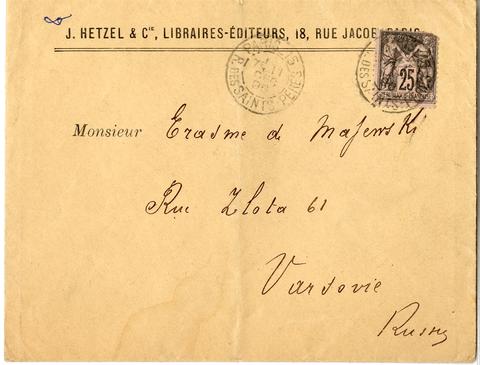 J. HETZEL & Cie, LIBRAIRES-ÉDITEURS, 18, RUE JACOB, PARIS
PARIS
R. DES SAINTS-PÈRES
25
Monsieur Erasme de Majewski
Rue Zlota 61
Varsovie
Russie